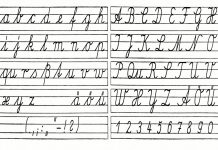 a b c d e f g h
i j k l m n o p
q r s ß t u v w
x y z ä ö ü
A B C D E F G H
I J K L M N O
P Q u R S T U V
W X Y Z Ä Ö Ü
1 2 3 4 5 6 7 8 9 0